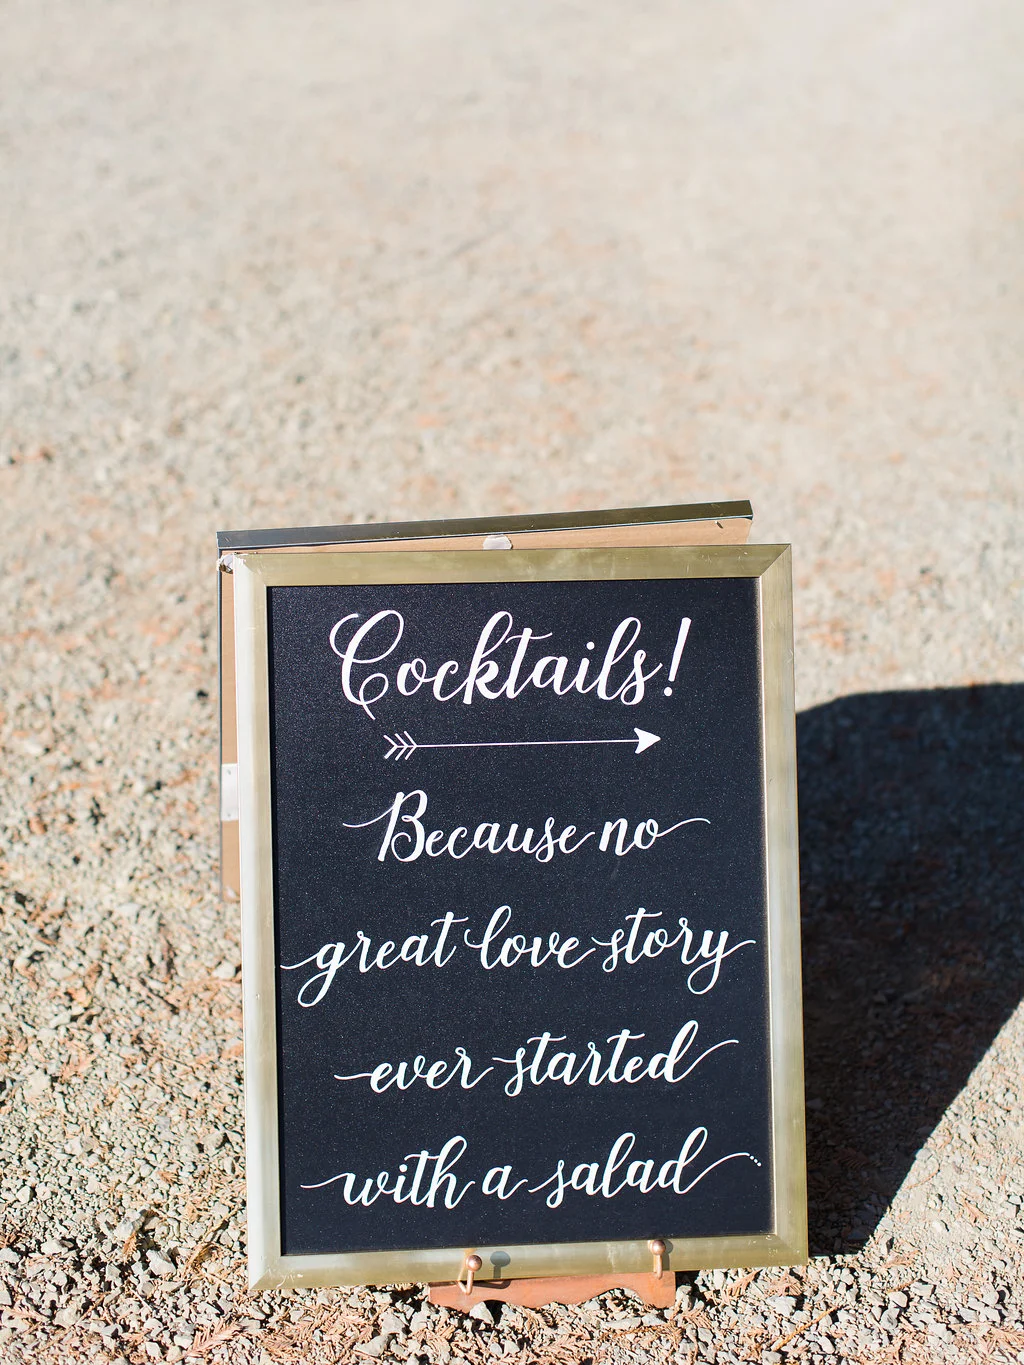 Cocktails!
Because no
great love story
ever started
with a salad...